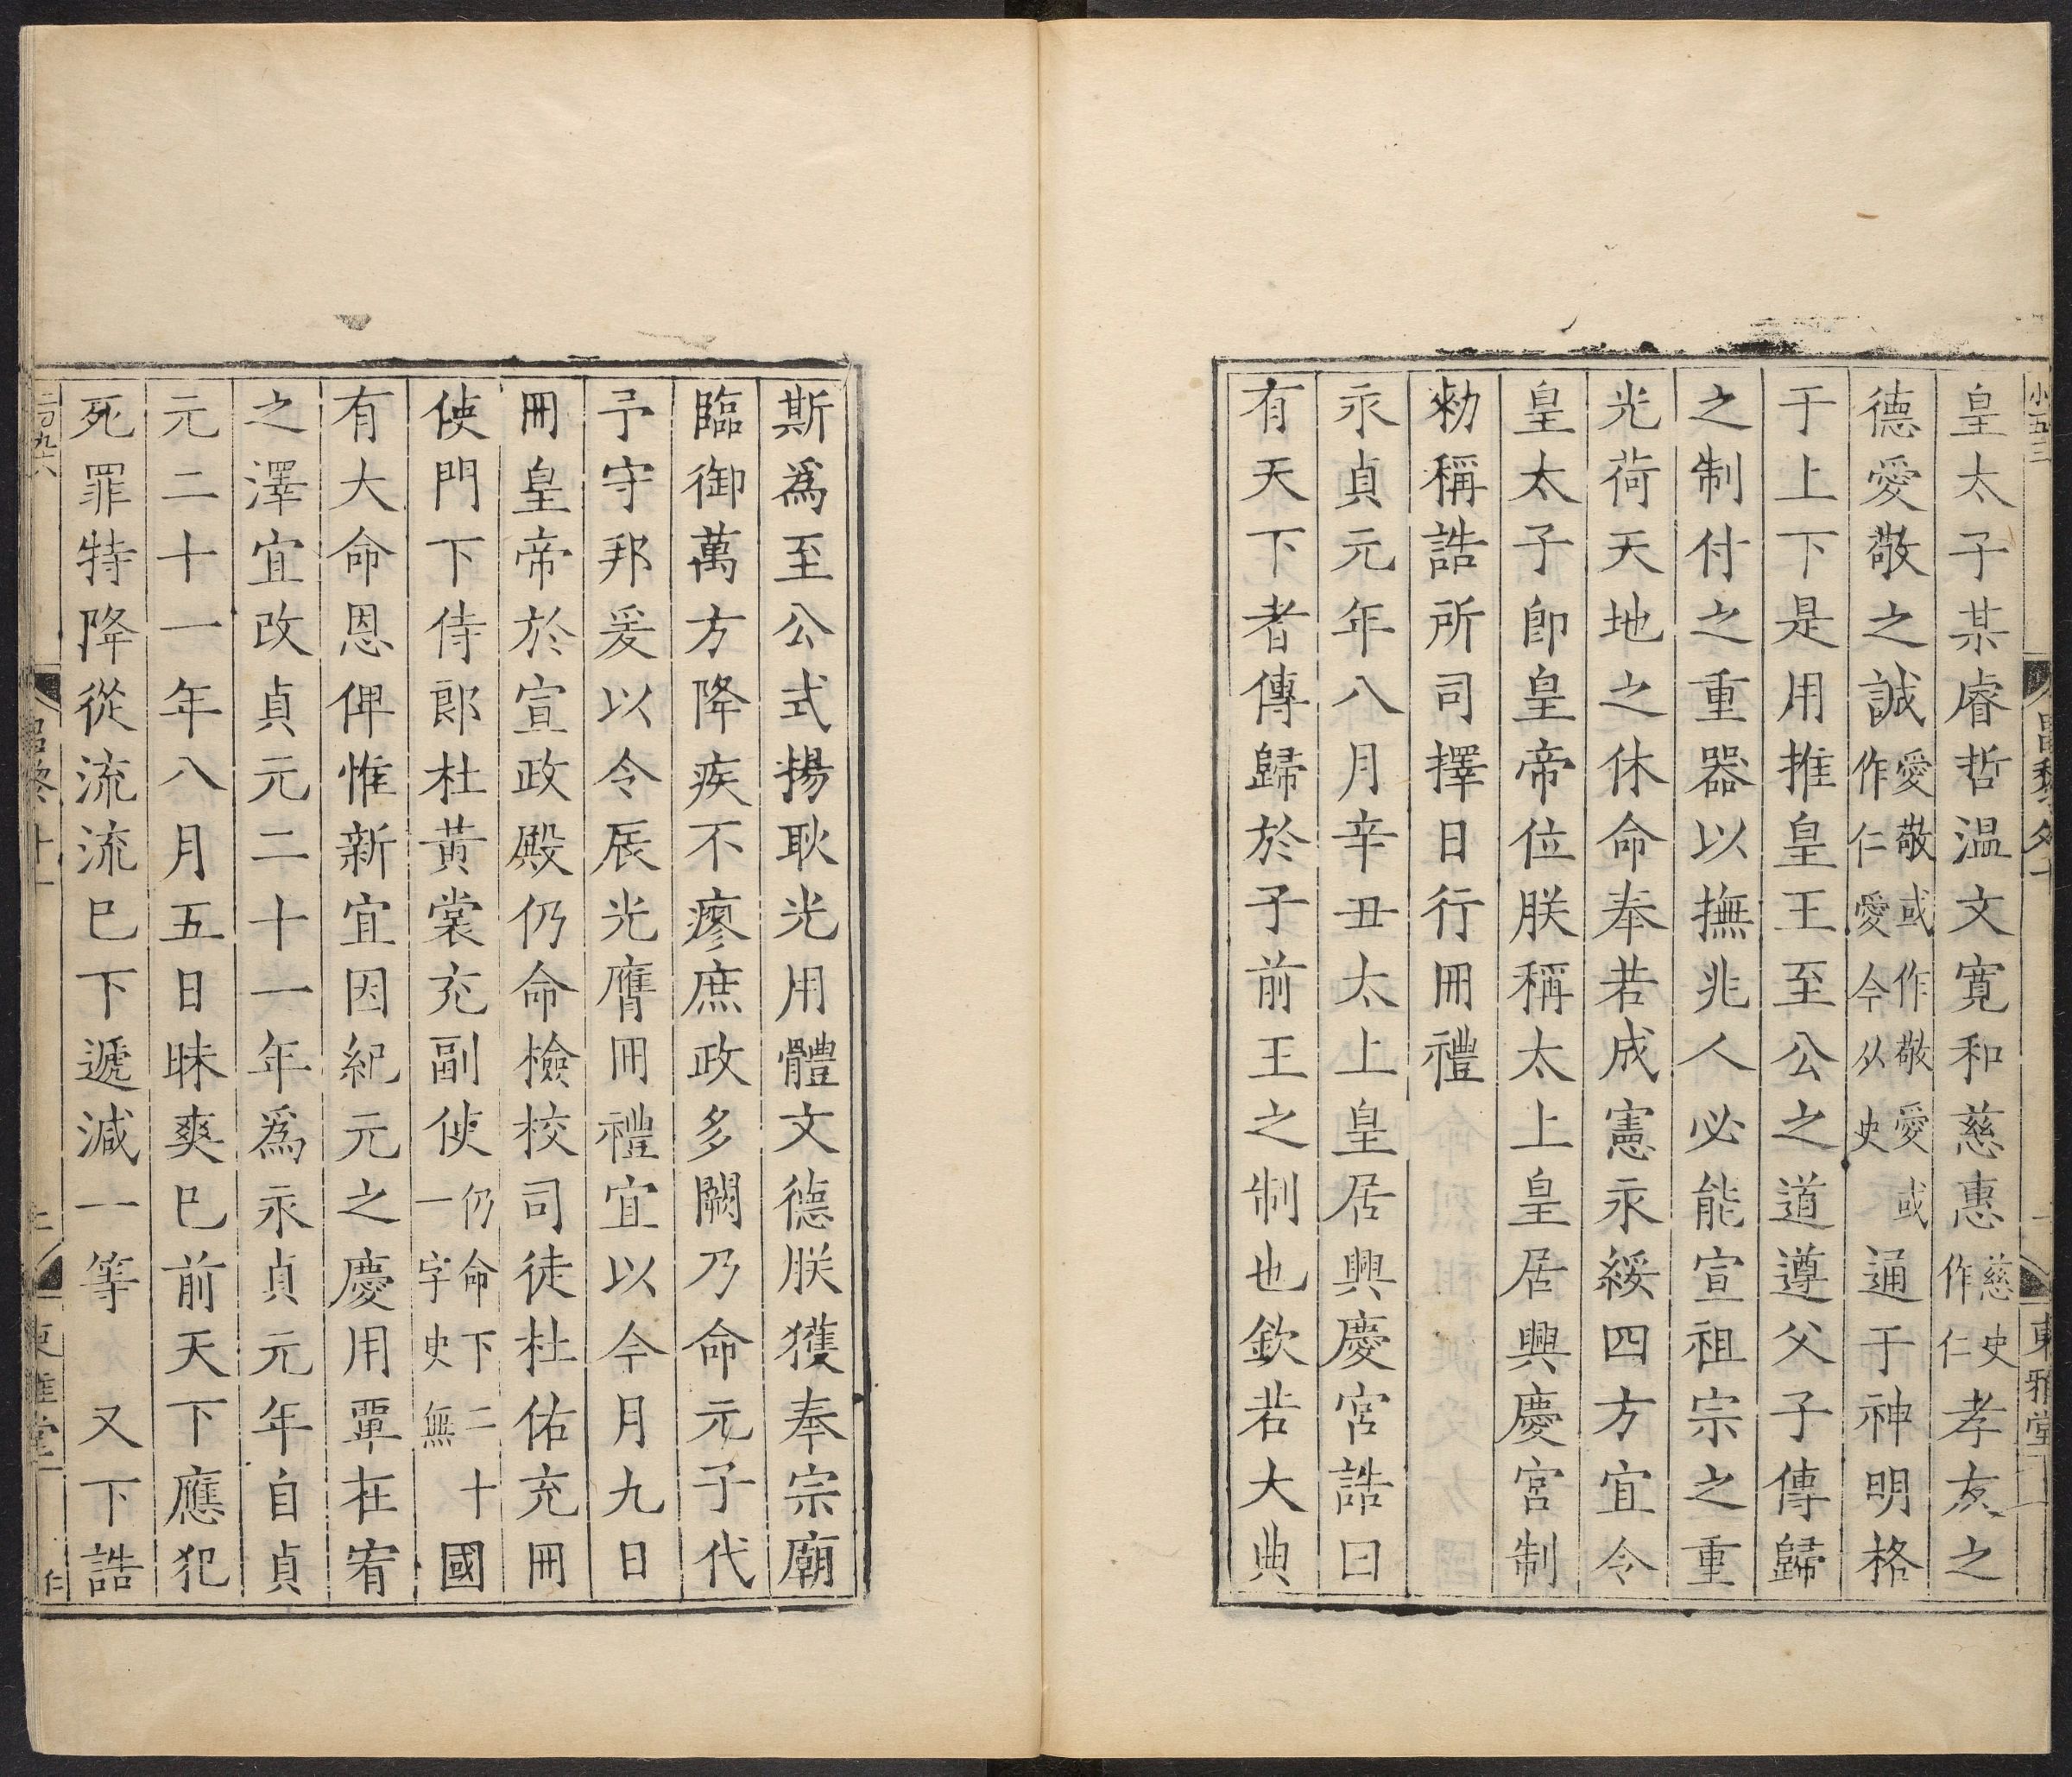 小五三
昌黎外十
東雅堂
皇太子某睿哲溫文寬和慈惠慈史作仁孝友之
德愛敬之誠愛敬或作敬愛或作仁愛今从史通于神明格
于上下是用推皇王至公之道遵父子傳歸
之制付之重器以撫兆人必能宣祖宗之重
光荷天地之休命奉若成憲永綏四方宜令
皇太子卽皇帝位朕稱太上皇居興慶宮制
勑稱誥所司擇日行冊禮
永貞元年八月辛丑太上皇居興慶宮誥曰
有天下者傳歸於子前王之制也欽若大典
斯爲至公式揚耿光用體文德朕獲奉宗廟
臨御萬方降疾不瘳庶政多闕乃命元子代
予守邦爰以令辰光膺冊禮宜以今月九日
冊皇帝於宣政殿仍命檢校司徒杜佑充冊
使門下侍郎杜黃裳充副使仍命下二十一字史無國
有大命恩俾惟新宜因紀元之慶用覃在宥
之澤宜改貞元二十一年爲永貞元年自貞
元二十一年八月五日昧爽已前天下應犯
死罪特降從流流已下遞減一等 又下誥